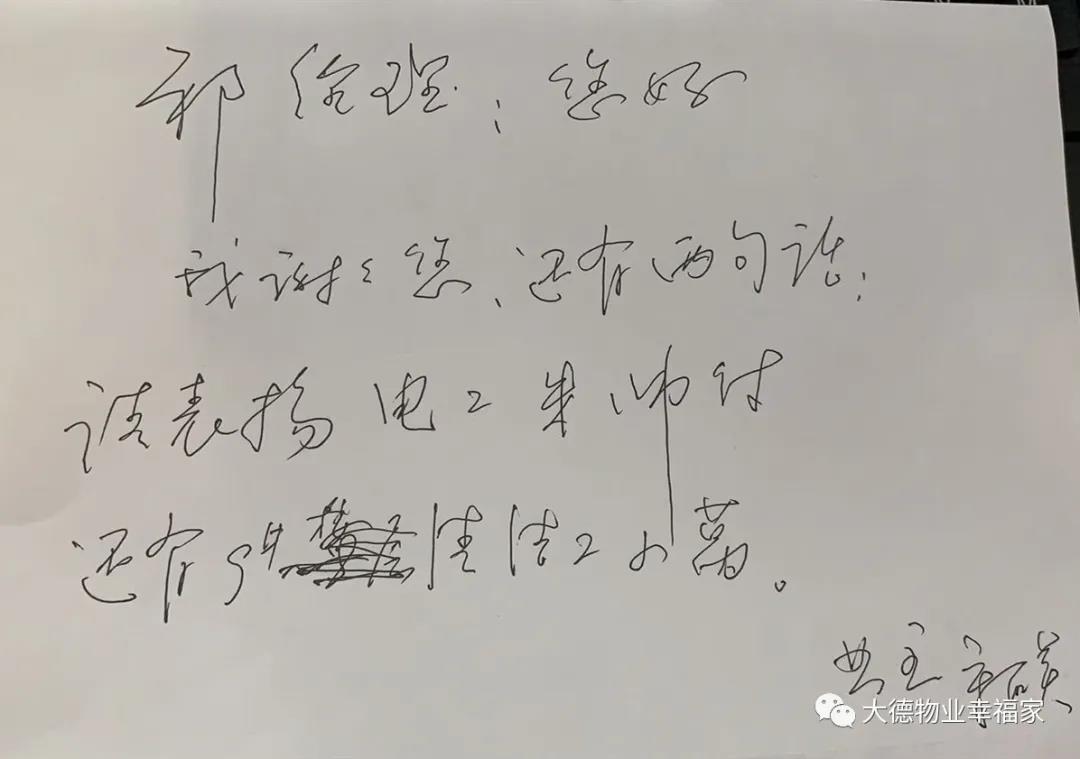 祁经理:您好
我谢谢您、还有两句话:
请表扬电工朱师付
还有9#清洁工小萬。
业主
大德物业幸福家